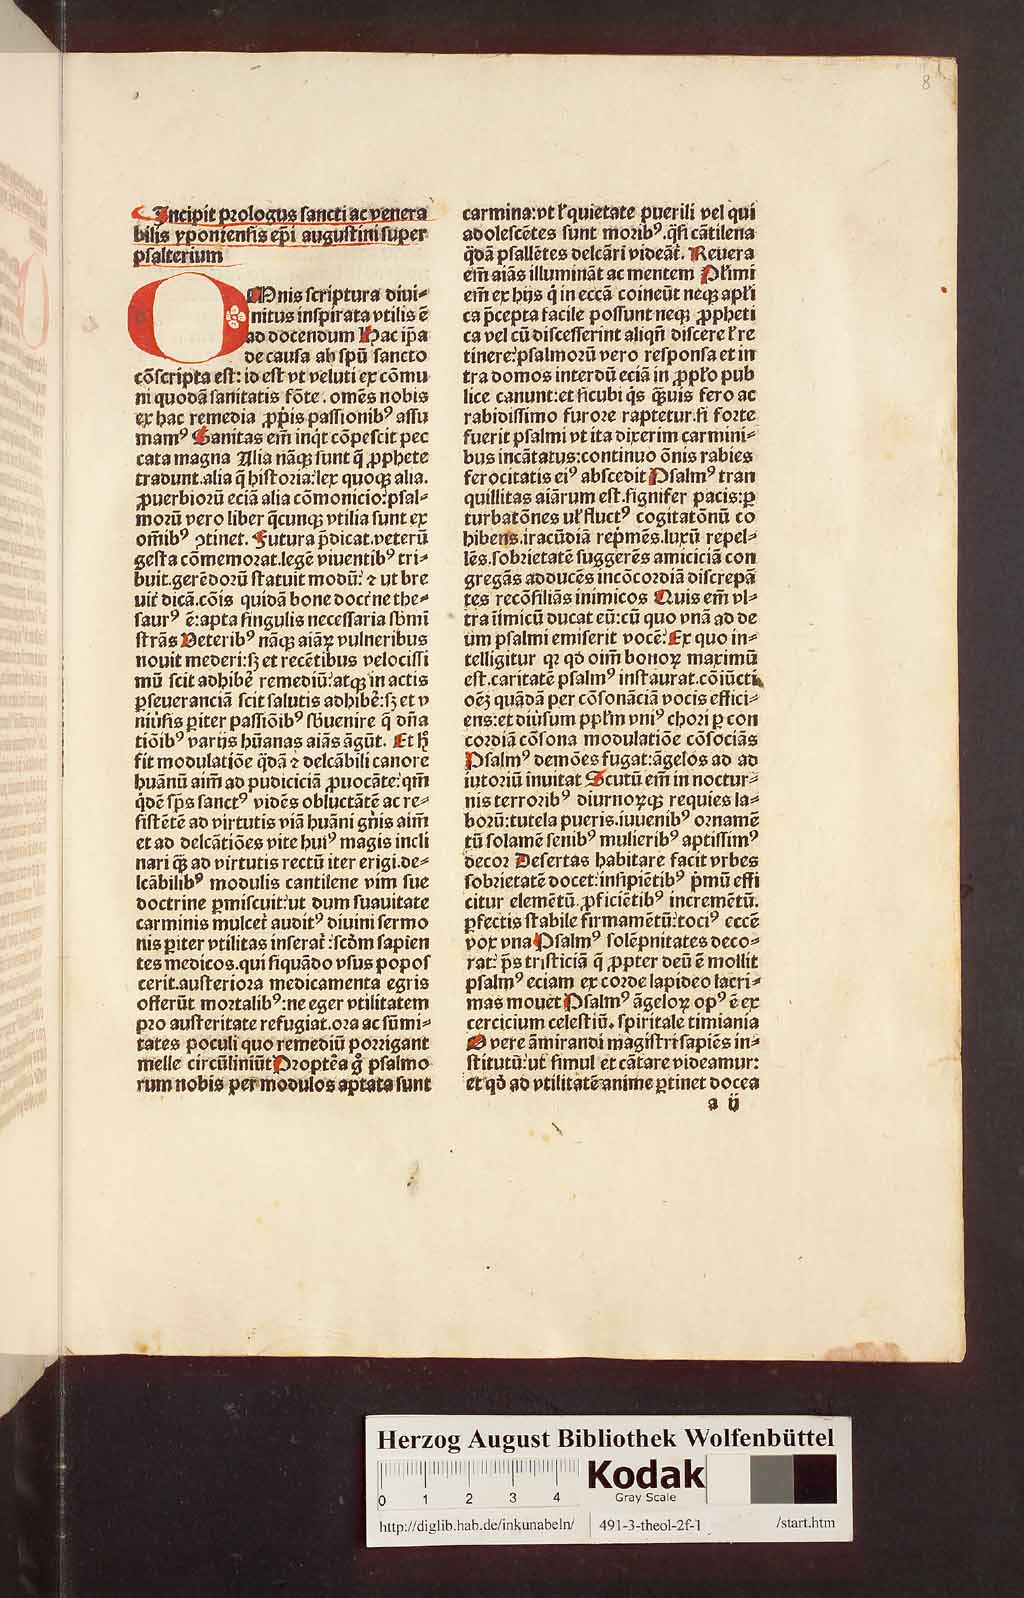 8
Incipit prologus sancti ac venera
bilis yponiensis ep̄i augustini super
psalterium
OMnis scriptura diui-
nitus inspirata vtilis ē
ad docendum Hac ip̄a
de causa ab spū sancto
cōscripta est: id est vt veluti ex cōmu
ni quodā sanitatis fōte. omēs nobis
ex hac remedia ꝓpris passionibꝰ assu
mamꝰ Sanitas em̄ inq̇t cōpescit pec
cata magna Alia nāqꝫ sunt q̄ ꝓphete
tradunt.alia q̄ historia:lex quoqꝫ alia.
ꝓuerbiorū eciā alia cōmonicio:psal-
morū vero liber q̄cunqꝫ vtilia sunt ex
om̄ibꝰ ꝯtinet. Futura p̄dicat.veterū
gesta cōmemorat.legē viuentibꝰ tri-
buit.gerēdorū statuit modū: ⁊ ut bre
uit̉ dicā.cōis quidā bone doctr̉ne the-
saurꝰ ē:apta singulis necessaria sb̄mi
strās Veteribꝰ nāqꝫ aiāꝝ vulneribus
nouit mederi:sꝫ et recētibus velocissi
mū scit adhibē̉ remediū:atqꝫ in actis
ꝑseueranciā scit salutis adhibē̉:sꝫ et v
niủsis ꝑiter passiōibꝰ sb̄uenire q̄ dn̄a
tiōibꝰ varijs hūanas aiās āgūt. Et h̄
fit modulatiōe q̇dā ⁊ delcābili canore
huānū aim̄ ad pudiciciā ꝓuocāte:qm̄
q̇dē sp̄s sanctꝰ vidēs obluctātē ac re-
sistētē ad virtutis viā huāni gn̄is aim̄
et ad delcātiōes vite huiꝰ magis incli
nari qꝫ̄ ad virtutis rectū iter erigi.de-
lcābilibꝰ modulis cantilene vim sue
doctrine ꝑmiscuit:ut dum suauitate
carminis mulcet̉ auditꝰ diuini sermo
nis ꝑiter vtilitas inserat̉:scd̄m sapien
tes medicos.qui siquādo vsus popos
cerit.austeriora medicamenta egris
offerūt mortalibꝰ:ne eger vtilitatem
pro austeritate refugiat.ora ac sūmi-
tates poculi quo remediū porrigant
melle circūliniūt Proptēa g̊ psalmo
rum nobis per modulos aptata sunt
carmina:vt ƚ quietate puerili vel qui
adolescētes sunt moribꝰ.q̇si cātilena
q̇dā psallētes delcāri videāt̉. Reuera
em̄ aiās illumināt ac mentem Plr̄imi
em̄ ex hijs q̇ in eccā coineūt neqꝫ apl̄i
ca p̄cepta facile possunt neqꝫ ꝓpheti
ca vel cū discesserint aliqn̄ discere ƚ re
tinere:psalmorū vero responsa et in
tra domos interdū eciā in ꝓpl̄o pub
lice canunt:et sicubi q̇s qꝫ̄uis fero ac
rabidissimo furore raptetur.si forte
fuerit psalmi vt ita dixerim carmini-
bus incātatus:continuo ōnis rabies
ferocitatis eiꝰ abscedit Psalmꝰ tran
quillitas aiārum est.signifer pacis:ꝑ
turbatōnes uƚ fluctꝰ cogitatōnū co
hibens.iracūdiā rep̉mēs.luxū repel-
lēs.sobrietatē suggerēs amiciciā con
gregās adducēs incōcordiā discrepā
tes recōsiliās inimicos Quis em̄ vl-
tra īimicū ducat eū:cū quo vnā ad de
um psalmi emiserit vocē: Ex quo in-
telligitur qꝛ qd̄ oim̄ bonoꝝ maximū
est.caritatē psalmꝰ instaurat.cōiūcti
oēꝫ quādā per cōsonāciā vocis effici-
ens:et diủsum ppl̄m vniꝰ chori ꝑ con
cordiā cōsona modulatiōe cōsociās
Psalmꝰ demōes fugat:āgelos ad ad
iutoriū inuitat Scutū em̄ in noctur-
nis terroribꝰ diurnoꝝqꝫ requies la-
borū:tutela pueris.iuuenibꝰ ornamē
tū solamē senibꝰ mulieribꝰ aptissimꝰ
decor Desertas habitare facit vrbes
sobrietatē docet:insipiētibꝰ p̉mū effi
citur elemētū.ꝓficiētibꝰ incremētū.
ꝑfectis stabile firmamētū:tociꝰ eccē
vox vna Psalmꝰ solēpnitates deco-
rat: p̄s tristiciā q̄ ꝓpter deū ē mollit
psalmꝰ eciam ex corde lapideo lacri-
mas mouet Psalmꝰ āgeloꝝ opꝰ ē ex
cercicium celestiū. spiritale timiania
O vere āmirandi magistri sapiēs in-
stitutū:ut simul et cātare videamur:
et qd̄ ad vtilitatē anime ꝑtinet docea
a ij
Herzog August Bibliothek Wolfenbüttel
0 1 2 3 4
Kodak
Gray Scale
http://diglib.hab.de/inkunabeln/ 491-3-theol-2f-1 /start.htm